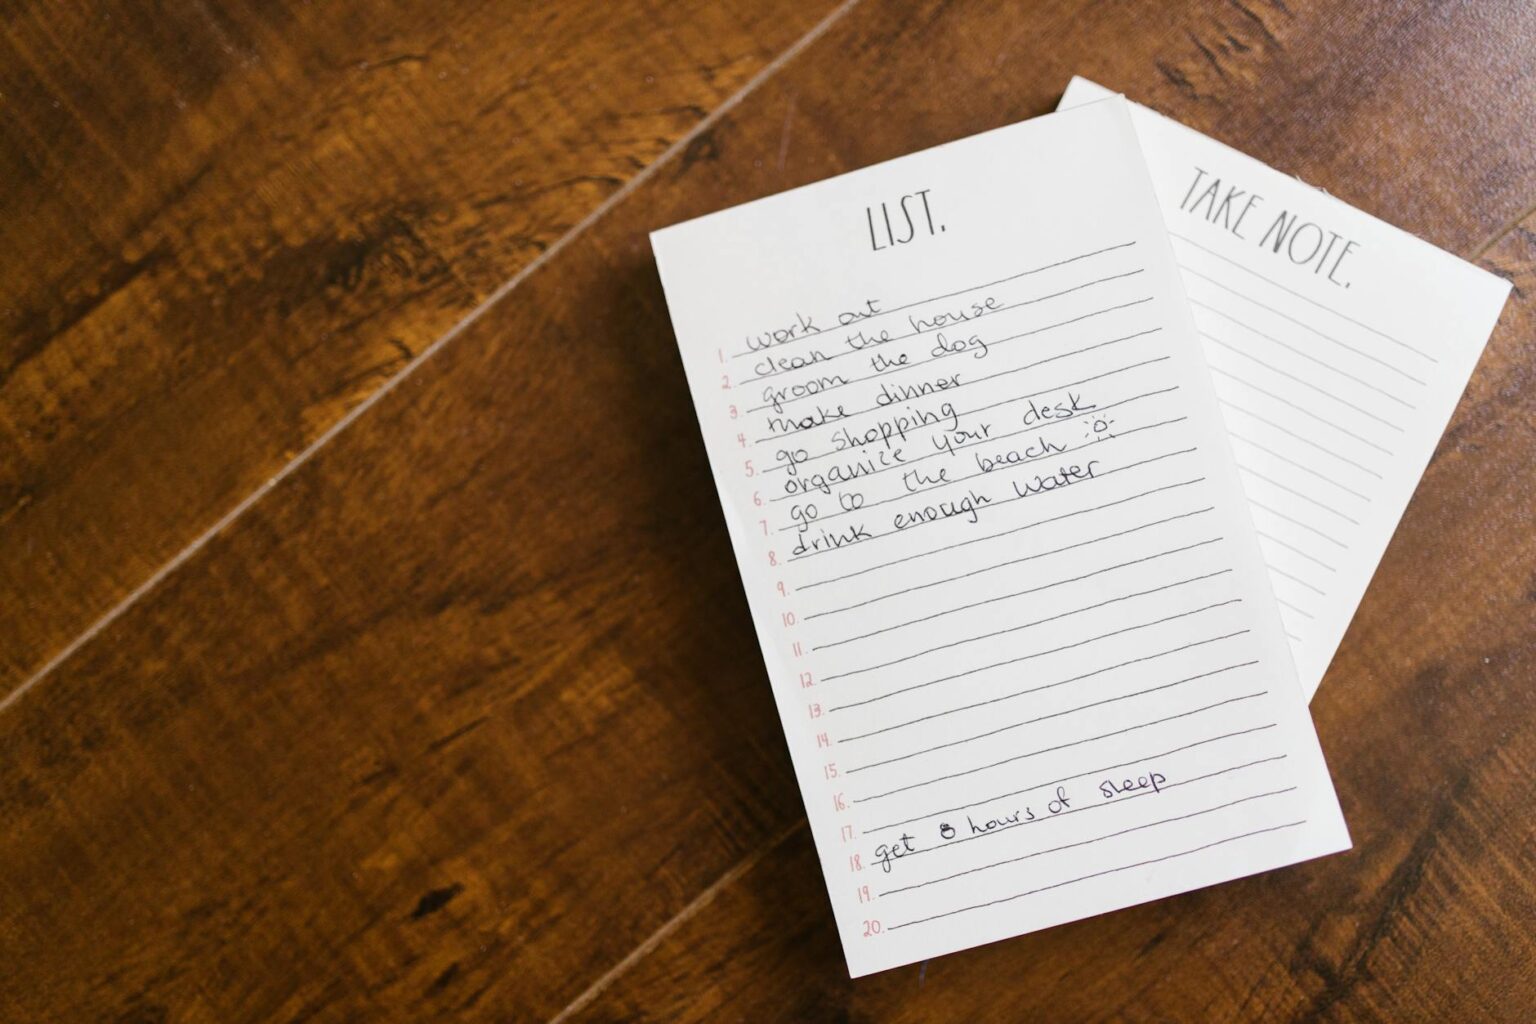 LIST.
1. work out
2. clean the house
3. groom the dog
4. make dinner
5. go shopping
6. organize your desk
7. go to the beach
8. drink enough water
9.
10.
11.
12.
13.
14.
15.
16.
17.
18. get 8 hours of sleep
19.
20.
TAKE NOTE.